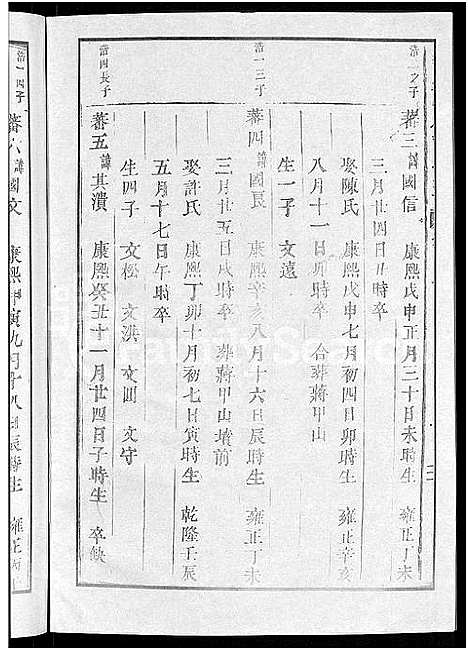 浩一次子
蕃三 諱國信 康熙戊申正月三十日未時生 雍正丁未
三月廿四日丑時卒
娶陳氏 康熙戊申七月初四日卯時生 雍正辛亥
八月十一日卯時卒 合葬蔣甲山
生一子 文遠
浩一三子
蕃四 諱國長 康熙辛亥八月十六日辰時生 雍正丁未
三月廿五日戌時卒 葬蔣甲山墳前
娶許氏 康熙丁卯十月初七日寅時生 乾隆壬辰
五月十七日午時卒
生四子 文松 文洪 文 文守
浩四長子
蕃五 諱其潰 康熙癸丑十一月廿四日子時生 卒缺
浩一四子
蕃八 諱國文 康熙甲寅九月十八日辰時生 雍正